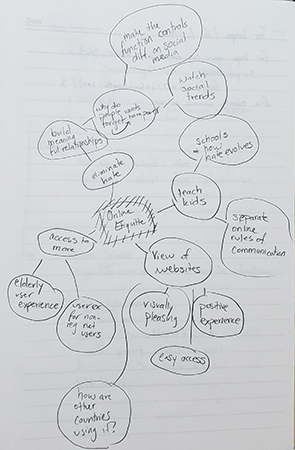 make the
function controls
diff. on social
media
watch
social
trends
why do
people
target
build
meaning
ful relationships
schools
+ how
hate evolves
eliminate
hate
teach
kids
Online
Etiquite
separate
online
rules of
communication
access to
more
view of
websites
elderly
user
experience
user ex
for non-
reg net
users
visually
pleasing
positive
experience
easy access
how are
other
countries
using it?